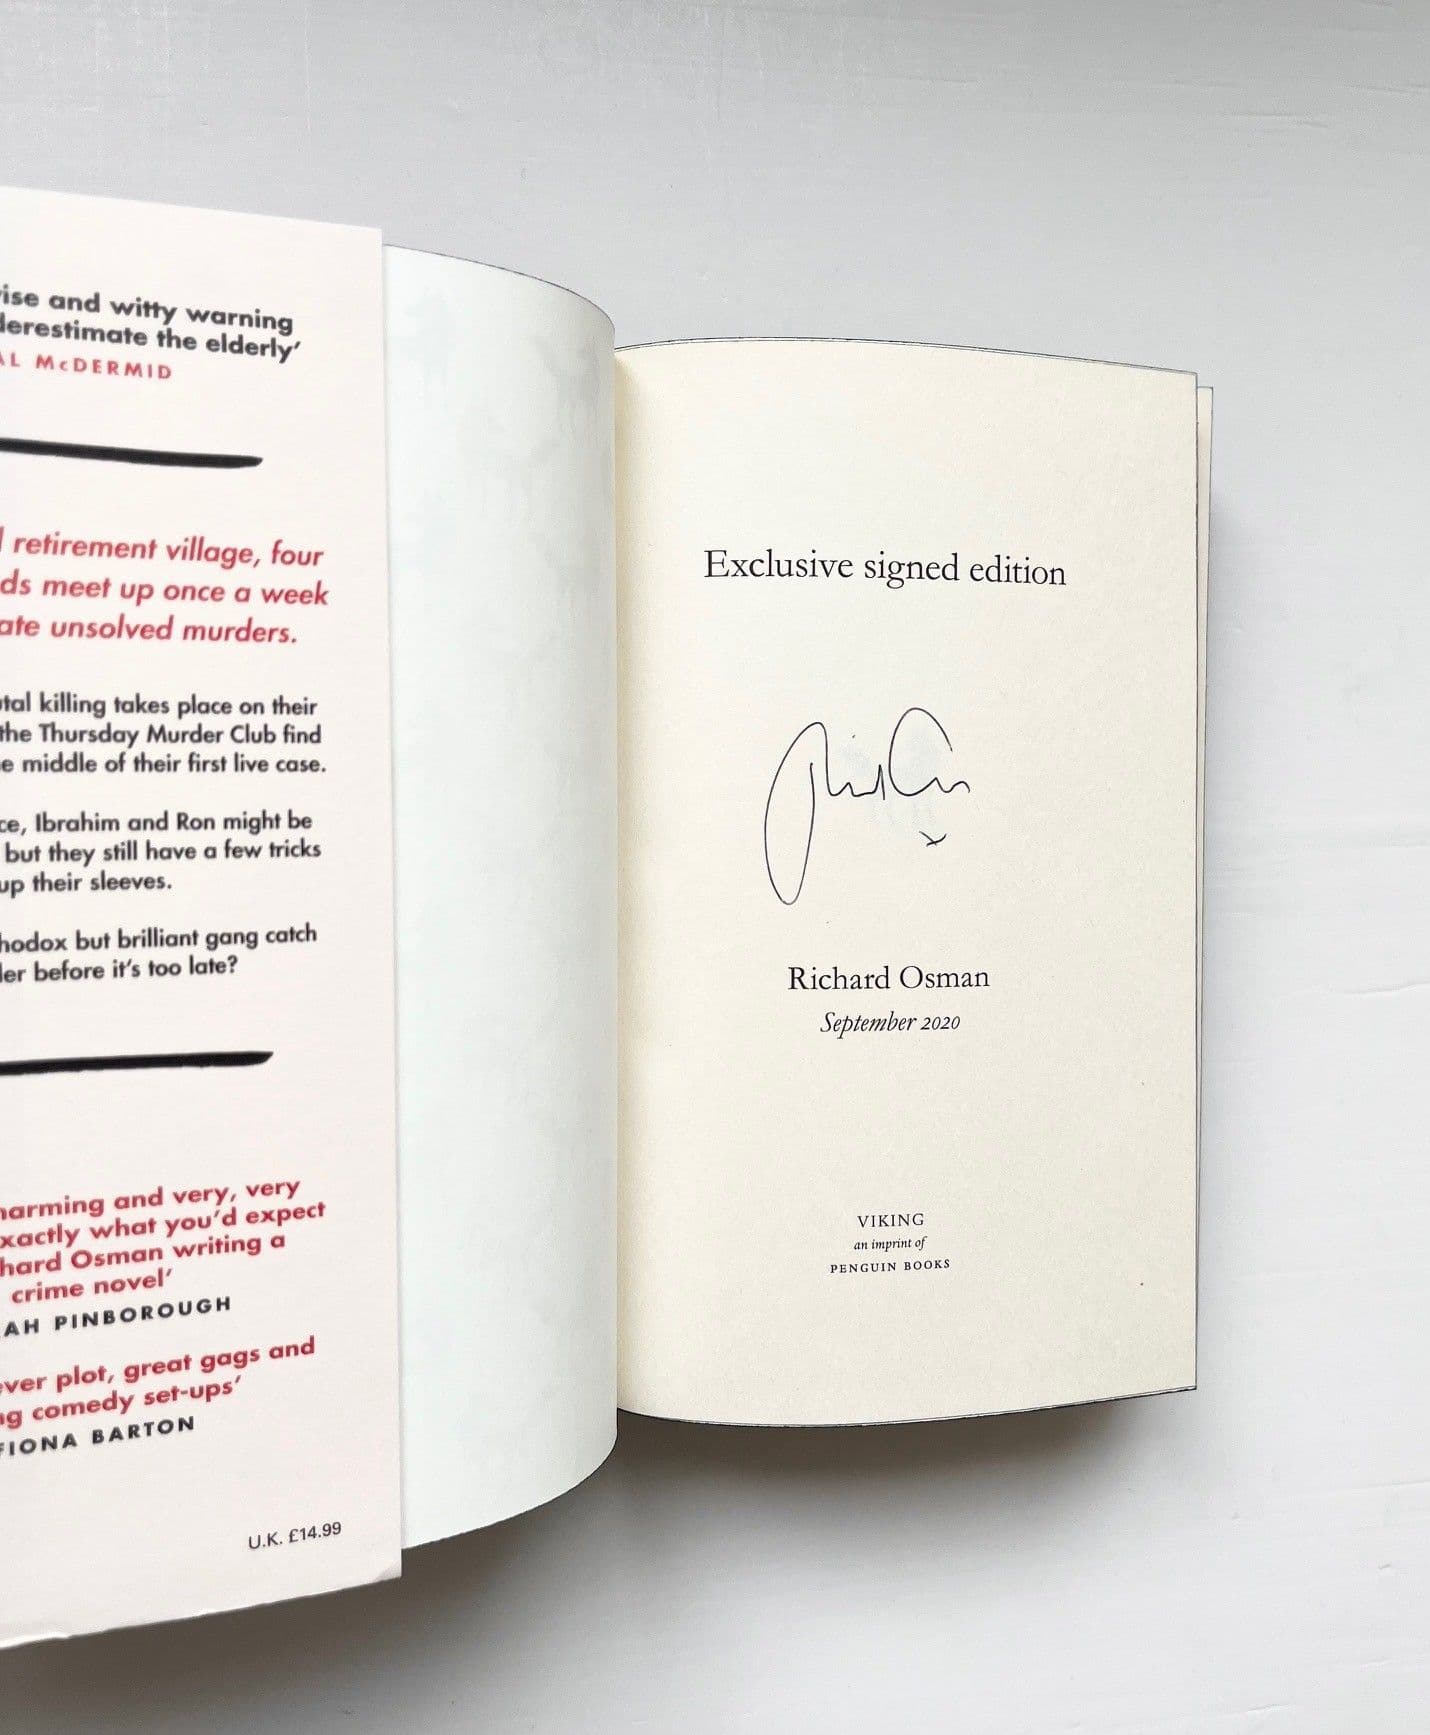 and witty warning
the elderly'
McDERMID
retirement village, four
meet up once a week
unsolved murders.
killing takes place on their
the Thursday Murder Club find
middle of their first live case.
Ibrahim and Ron might be
but they still have a few tricks
up their sleeves.
but brilliant gang catch
before it's too late?
and very, very
what you'd expect
Osman writing a
crime novel'
PINBOROUGH
plot, great gags and
comedy set-ups'
FIONA BARTON
U.K. £14.99
Exclusive signed edition
Richard Osman
September 2020
VIKING
an imprint of
PENGUIN BOOKS